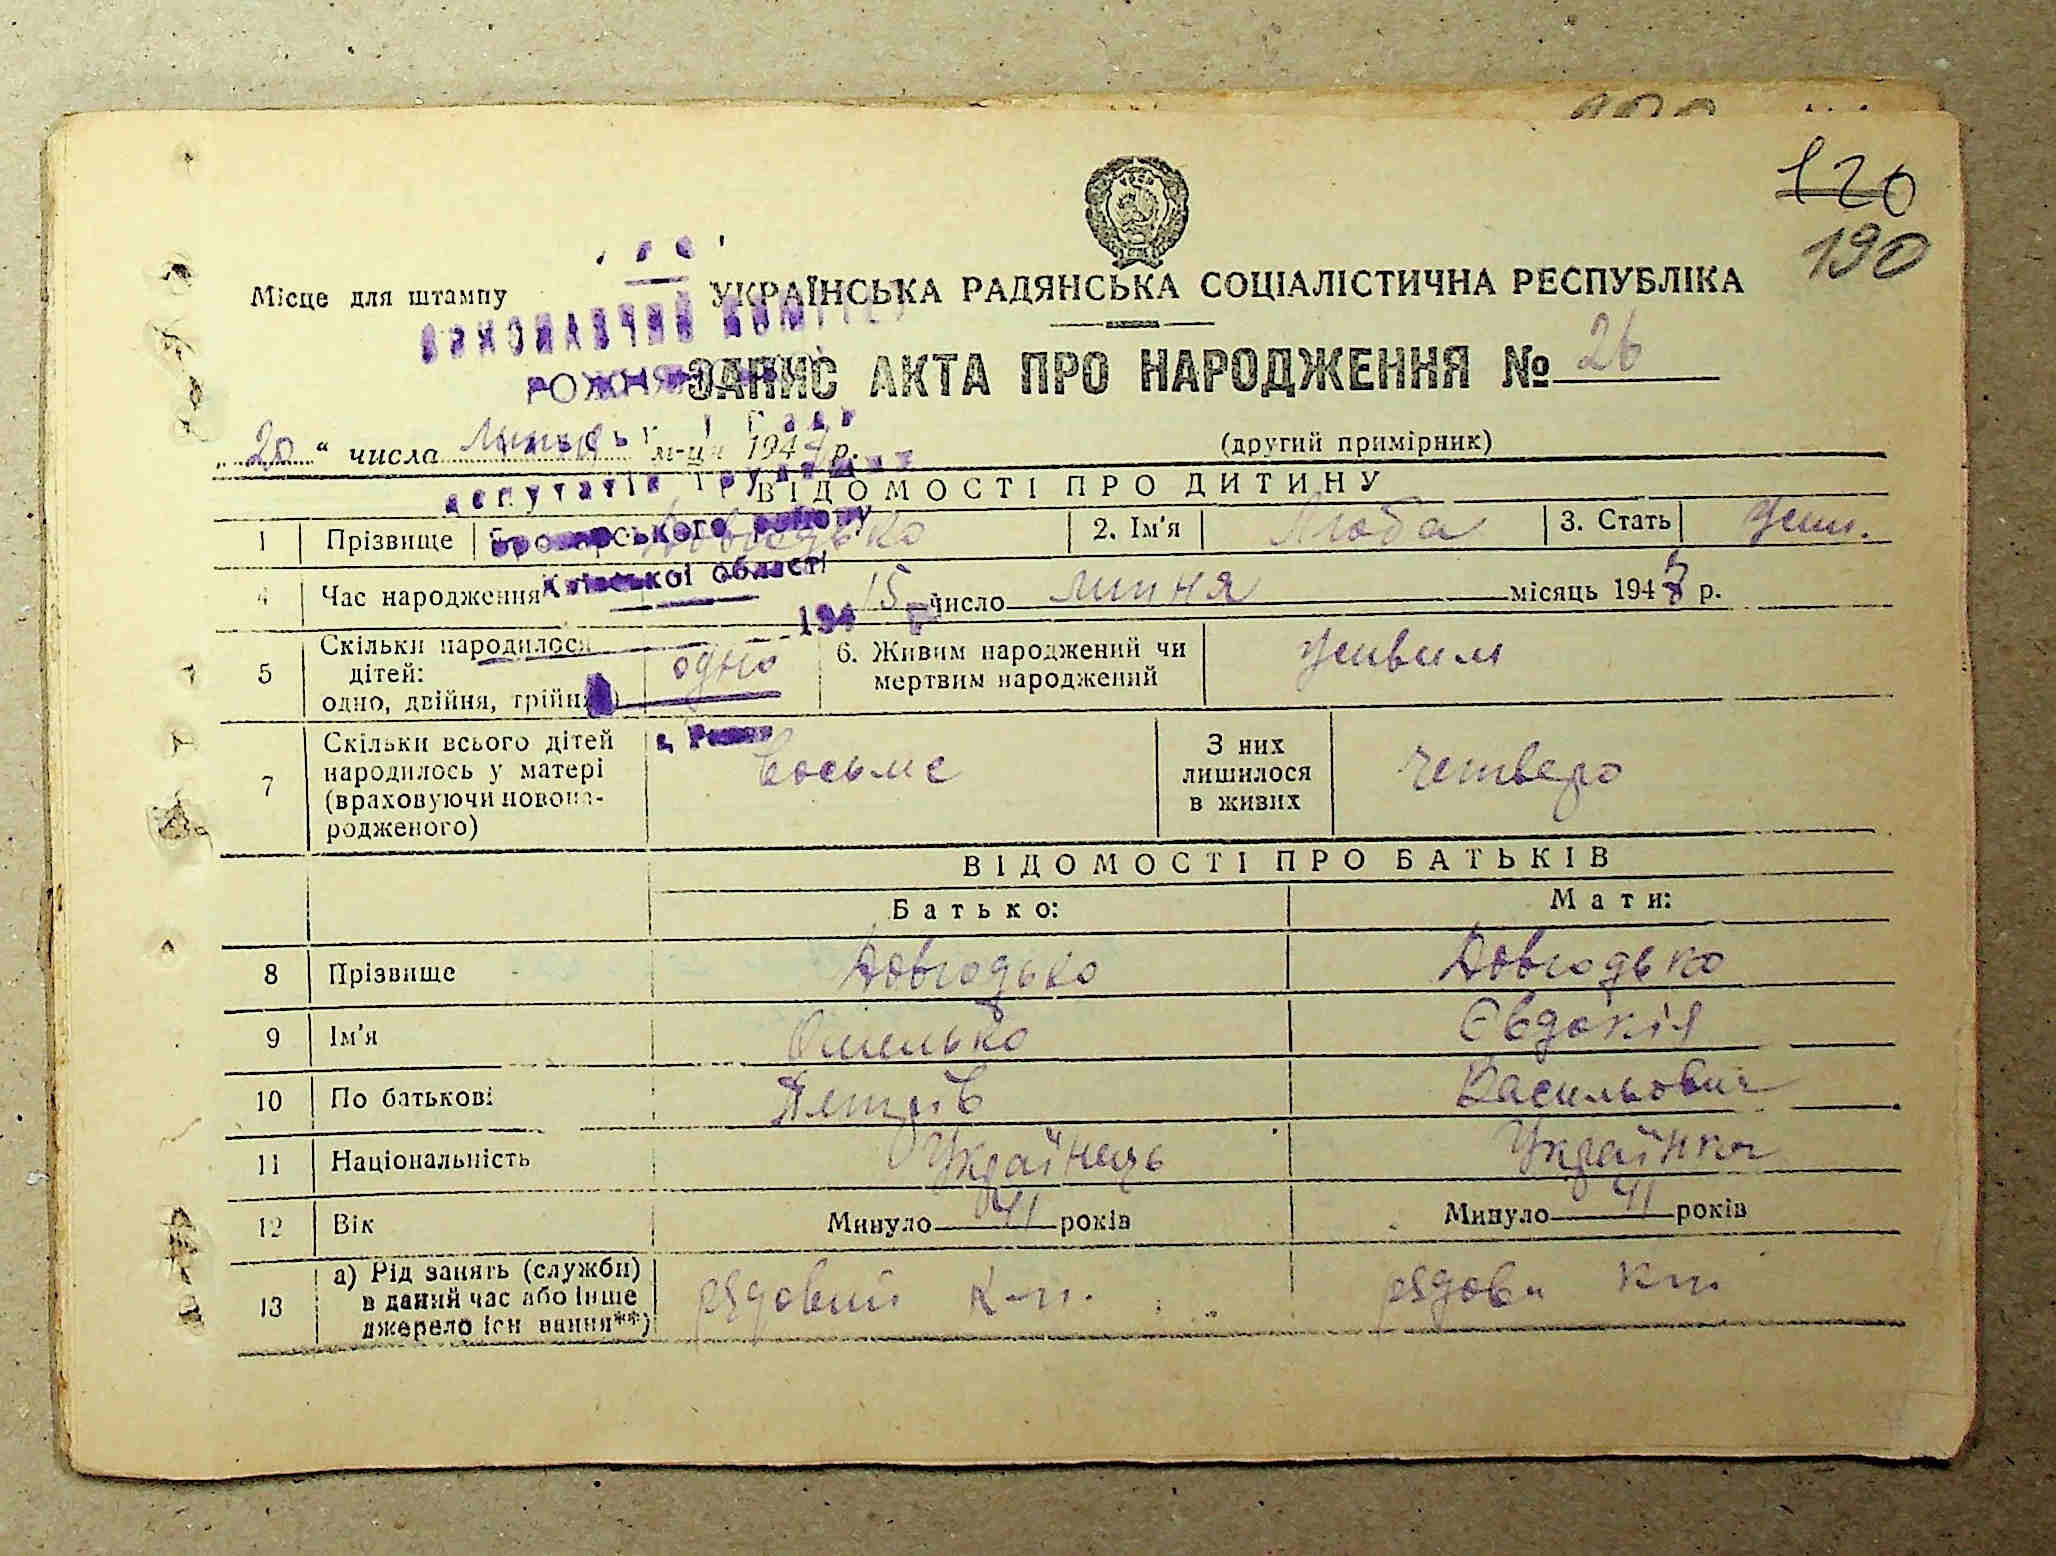 120
190
Місце для штампу
УКРАЇНСЬКА РАДЯНСЬКА СОЦІАЛІСТИЧНА РЕСПУБЛІКА
ВИКОНАВЧИЙ КОМІТЕТ
ЗАПИС АКТА ПРО НАРОДЖЕННЯ № 26
„20“ числа липня м-ця 194 р.
(другий примірник)
депутатів трудящих
ВІДОМОСТІ ПРО ДИТИНУ
Броварського району
1 Прізвище Довгодько 2. Ім'я Люба 3. Стать жін.
Київської області
4 Час народження 15 число липня місяць 1947 р.
194 р.
5 Скільки народилося дітей: одно, двійня, трійня) одно 6. Живим народжений чи мертвим народжений живим
7 Скільки всього дітей народилось у матері (враховуючи новонародженого) восьме З них лишилося в живих четверо
ВІДОМОСТІ ПРО БАТЬКІВ
Батько: Мати:
8 Прізвище Довгодько Довгодько
9 Ім'я Омелько Євдокія
10 По батькові Петрів Васильович
11 Національність Українець Українка
12 Вік Минуло 41 років Минуло 41 років
13 а) Рід занять (служби) в даний час або інше джерело існ вання**) рядовий к-п. рядова кп.